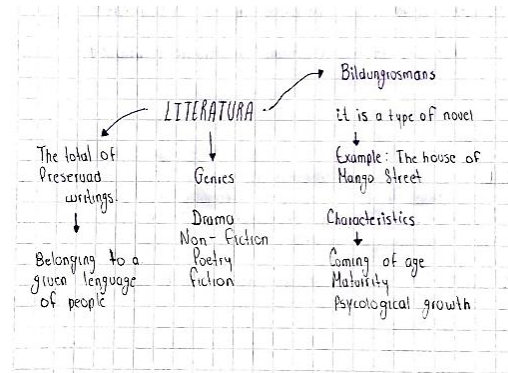 LITERATURA
The total of
Preservad
writings.
Belonging to a
given lenguage
of people
Genres
Drama
Non-fiction
Poetry
fiction
Bildungrosmans
it is a type of novel
Example: The house of
Mango Street
Characteristics
Coming of age
Maturrity
Psycological growth